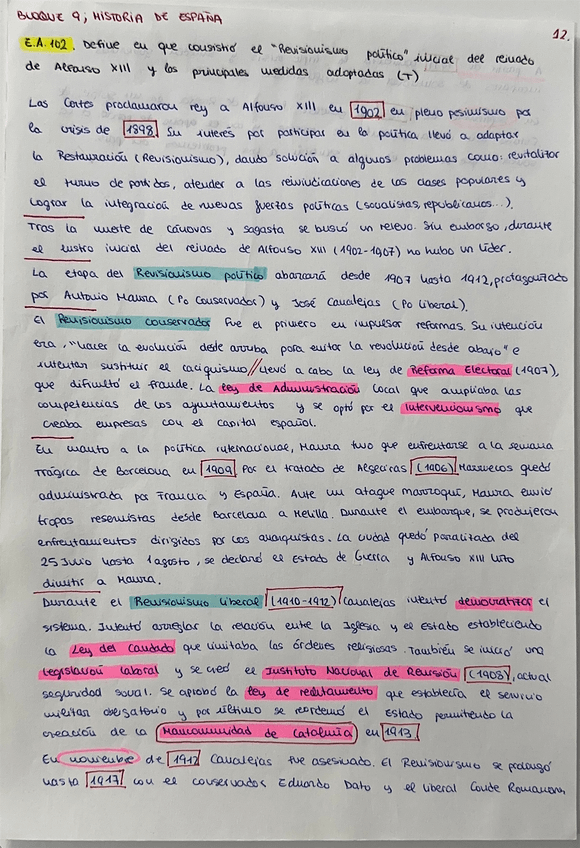 BLOQUE 9; HISTORIA DE ESPAÑA
12.
E.A. 102. Define en que consistió el "Revisionismo político" inicial del reinado
de Alfonso XIII y las principales medidas adoptadas (T)
Las Cortes proclamaron rey a Alfonso XIII en 1902 en pleno pesimismo por
la crisis de 1898. Su interés por participar en la política llevó a adaptar
la Restauración (Revisionismo), dando solución a algunos problemas como: revitalizar
el turno de partidos, atender a las reivindicaciones de las clases populares y
lograr la integración de nuevas fuerzas políticas (socialistas, republicanos...).
Tras la muerte de Cánovas y Sagasta se buscó un relevo. Sin embargo, durante
el lustro inicial del reinado de Alfonso XIII (1902-1907) no hubo un líder.
La etapa del Revisionismo político abarcará desde 1907 hasta 1912, protagonizado
por Antonio Maura (Po Conservador) y José Canalejas (Po liberal).
El Revisionismo conservador fue el primero en impulsar reformas. Su intención
era, "hacer la evolución desde arriba para evitar la revolución desde abajo" e
intentar sustituir el caciquismo // llevó a cabo la ley de Reforma Electoral (1907),
que dificultó el fraude. La Ley de Administración Local que ampliaba las
competencias de los ayuntamientos y se optó por el Intervencionismo que
creaba empresas con el capital español.
En cuanto a la política internacional, Maura tuvo que enfrentarse a la semana
trágica de Barcelona en 1909. Por el tratado de Algeciras (1906) Marruecos quedó
administrada por Francia y España. Ante un ataque marroquí, Maura envió
tropas reservistas desde Barcelona a Melilla. Durante el embarque, se produjeron
enfrentamientos dirigidos por los anarquistas. La ciudad quedó paralizada del
25 Junio hasta 1 agosto, se declaró el Estado de Guerra y Alfonso XIII hizo
dimitir a Maura.
Durante el Revisionismo liberal (1910-1912) Canalejas intentó democratizar el
sistema. Intentó arreglar la relación entre la Iglesia y el Estado estableciendo
la Ley del Candado que limitaba las órdenes religiosas. También se inició una
legislación laboral y se creó el Instituto Nacional de Previsión (1908), actual
seguridad social. Se aprobó la ley de reclutamiento que establecía el servicio
militar obligatorio y por último se reordenó el Estado permitiendo la
creación de la Mancomunidad de Cataluña en 1913
En noviembre de 1912 Canalejas fue asesinado. El Revisionismo se prolongó
hasta 1917 con el conservador Eduardo Dato y el liberal Conde Romanones,